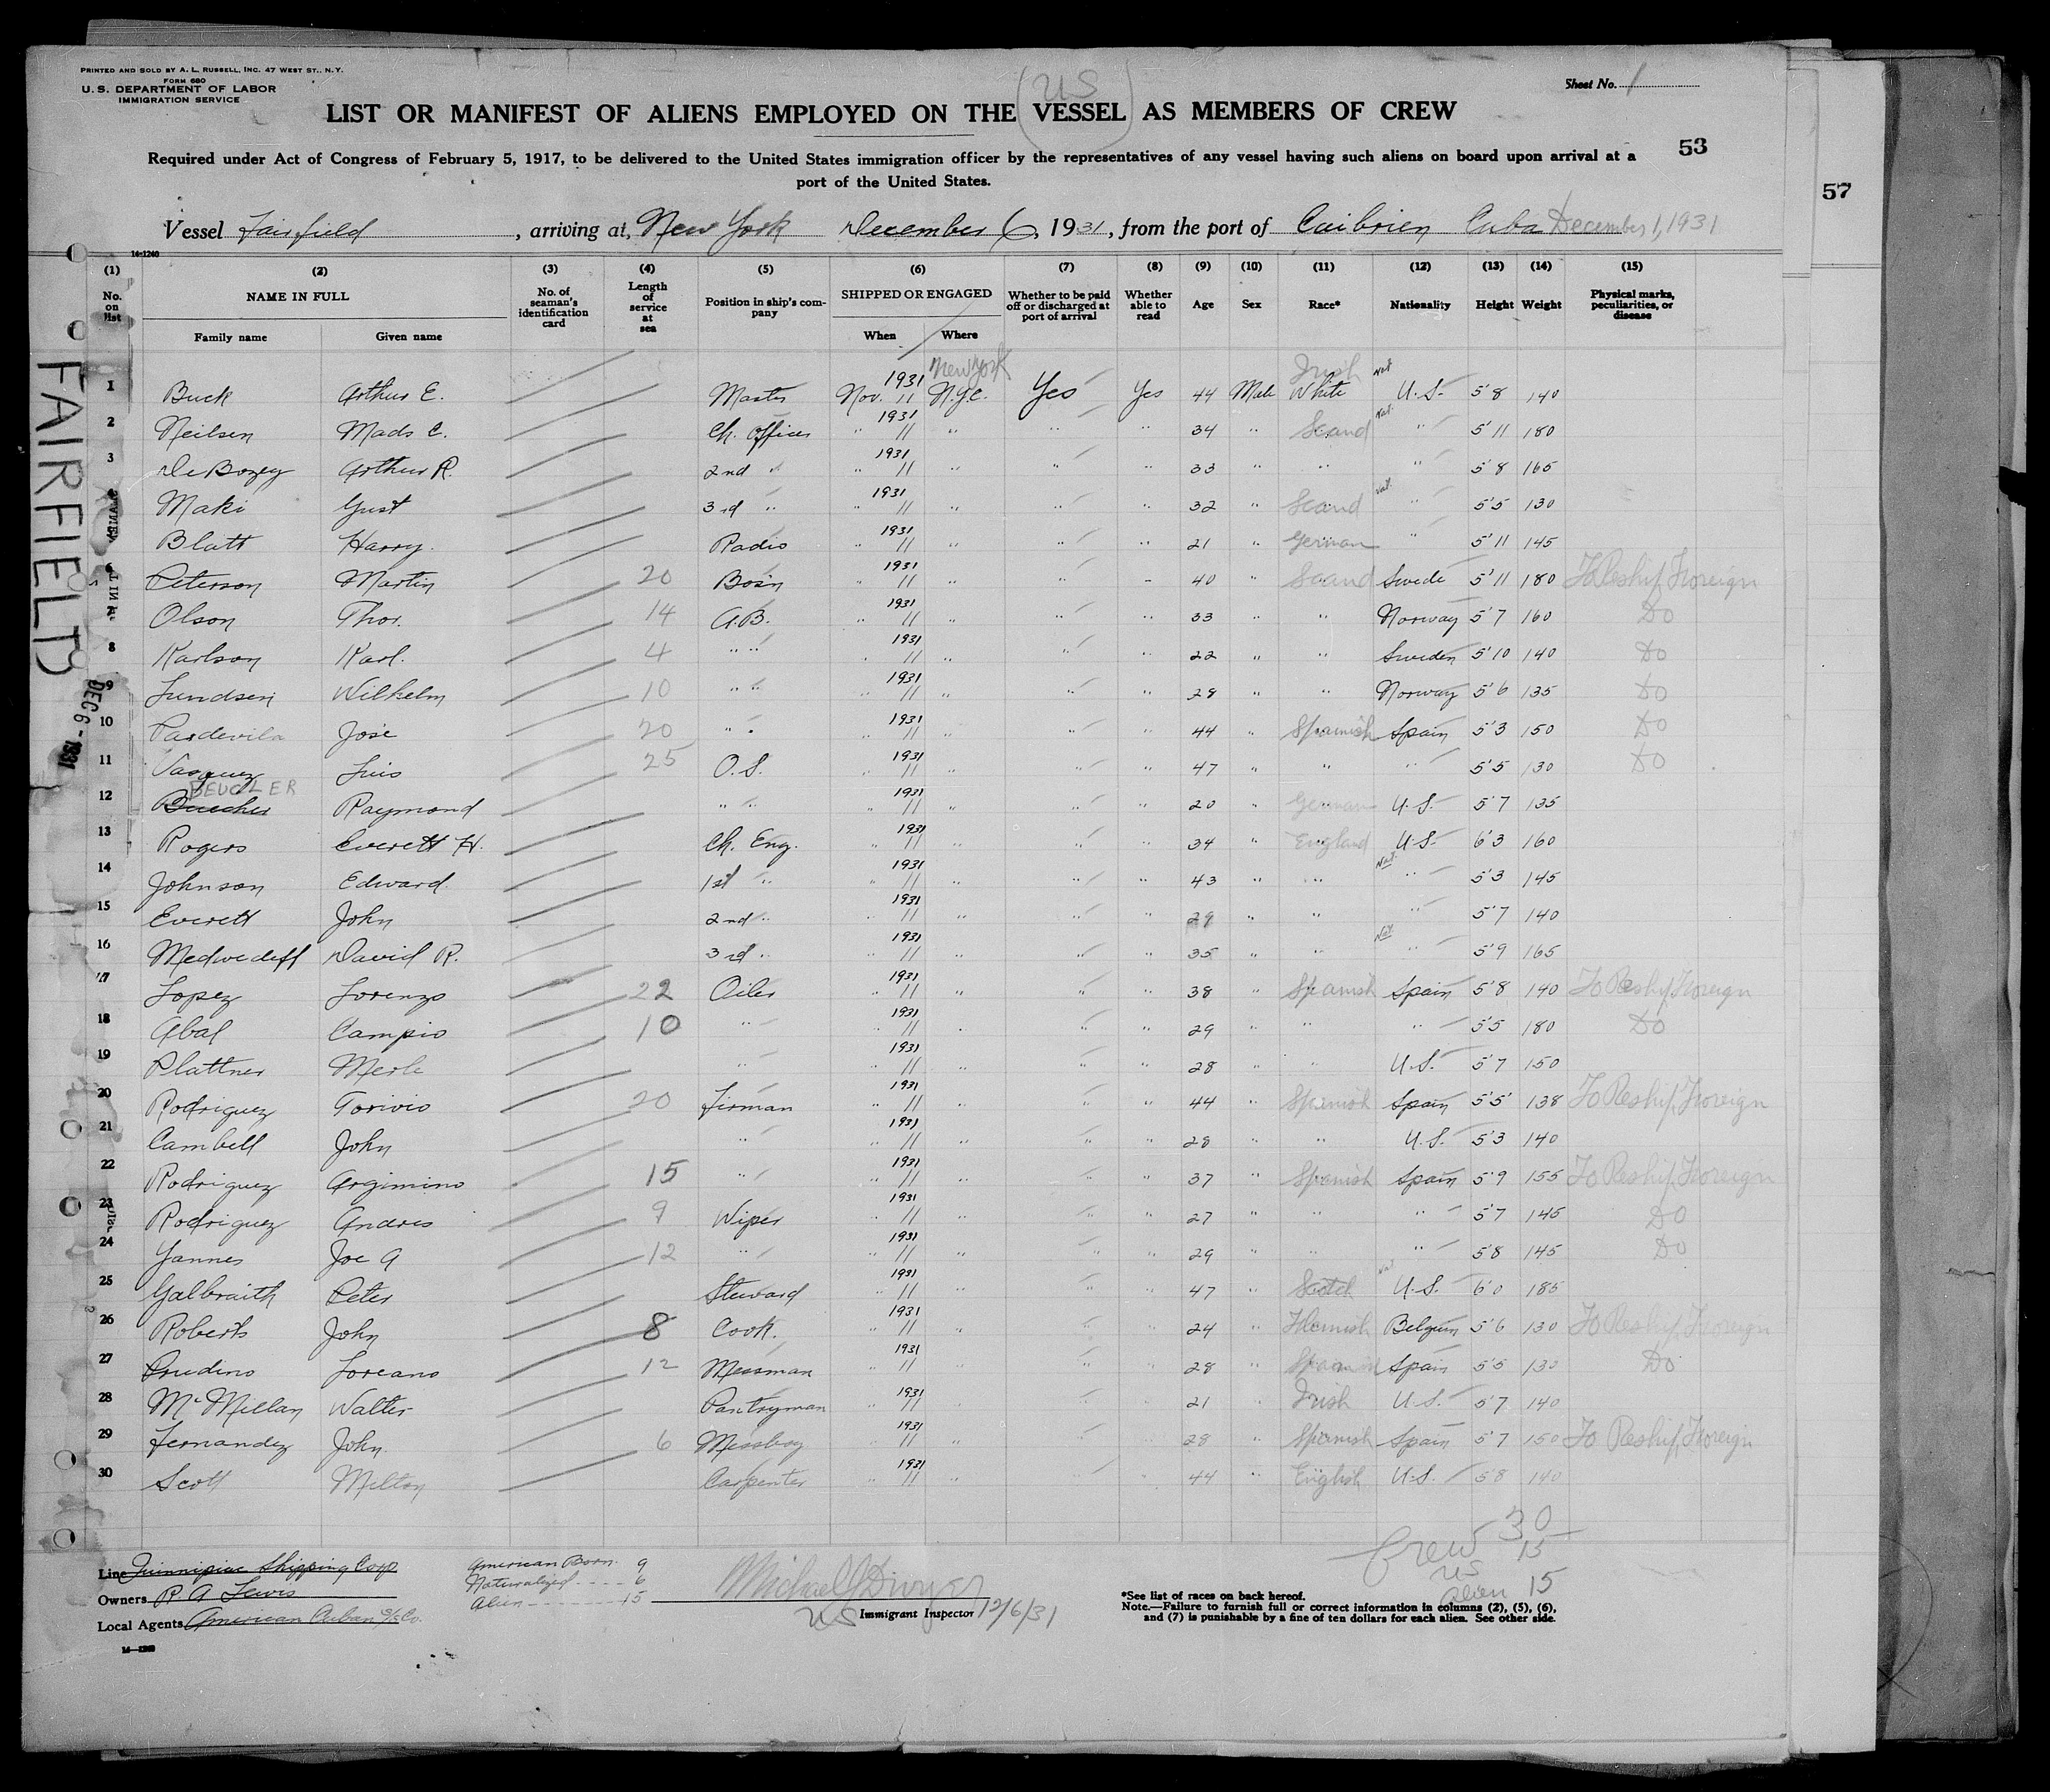 PRINTED AND SOLD BY A. L. RUSSELL, INC. 47 WEST ST., N.Y.
FORM 680
U. S. DEPARTMENT OF LABOR
IMMIGRATION SERVICE
Sheet No. 1
US
LIST OR MANIFEST OF ALIENS EMPLOYED ON THE VESSEL AS MEMBERS OF CREW
53
57
Required under Act of Congress of February 5, 1917, to be delivered to the United States immigration officer by the representatives of any vessel having such aliens on board upon arrival at a
port of the United States.
Vessel Fairfield, arriving at, New York December 6, 1931, from the port of Caibrien Cuba December 1, 1931
14-1240
(1) (2) (3) (4) (5) (6) (7) (8) (9) (10) (11) (12) (13) (14) (15)
No. on list NAME IN FULL Family name Given name No. of seaman's identification card Length of service at sea Position in ship's company SHIPPED OR ENGAGED When Where Whether to be paid off or discharged at port of arrival Whether able to read Age Sex Race* Nationality Height Weight Physical marks, peculiarities, or disease
New York Irish Nat
1 Buck Arthur E. Master 1931 Nov. 11 N.Y.C. Yes Yes 44 Male White U.S. 5'8 140
2 Neilsen Mads C. Ch. Officer 1931 " 11 " " " 34 " Scand Nat. " 5'11 180
3 DeBozey Arthur R. 2nd " 1931 " 11 " " " 33 " " " 5'8 165
4 Maki Gust 3rd " 1931 " 11 " " " 32 " Scand Nat. " 5'5 130
5 Blatt Harry. Radio 1931 " 11 " " " 21 " German " 5'11 145
6 Peterson Martin 20 Bosn 1931 " 11 " " " 40 " Scand Swede 5'11 180 To Reship Foreign
7 Olson Thor. 14 A.B. 1931 " 11 " " " 33 " " Norway 5'7 160 Do
8 Karlson Karl. 4 " " 1931 " 11 " " " 22 " " Sweden 5'10 140 Do
9 Lundsen Wilhelm 10 " " 1931 " 11 " " " 28 " " Norway 5'6 135 Do
10 Pardevila Jose 20 " " 1931 " 11 " " " 44 " Spanish Spain 5'3 150 Do
11 Vasquez Luis 25 O.S. 1931 " 11 " " " 47 " " " 5'5 130 Do
BEUCLER
12 Buecher Raymond " " 1931 " 11 " " " 20 " German U.S. 5'7 135
13 Rogers Everett H. Ch. Eng. 1931 " 11 " " " 34 " England U.S. 6'3 160
14 Johnson Edward. 1st " 1931 " 11 " " " 43 " " Nat. " 5'3 145
15 Everett John 2nd " 1931 " 11 " " " 29 " " " 5'7 140
16 Medwedeff David R. 3rd " 1931 " 11 " " " 35 " " Nat. " 5'9 165
17 Lopez Lorenzo 22 Oiler 1931 " 11 " " " 38 " Spanish Spain 5'8 140 To Reship Foreign
18 Abal Campio 10 " 1931 " 11 " " " 29 " " " 5'5 180 Do
19 Plattner Merle " 1931 " 11 " " " 28 " " U.S. 5'7 150
20 Rodriguez Torivio 20 Firman 1931 " 11 " " " 44 " Spanish Spain 5'5 138 To Reship Foreign
21 Cambell John " 1931 " 11 " " " 28 " " U.S. 5'3 140
22 Rodriguez Argimino 15 " 1931 " 11 " " " 37 " Spanish Spain 5'9 155 To Reship Foreign
23 Rodriguez Andres 9 Wiper 1931 " 11 " " " 27 " " " 5'7 145 Do
24 Yannes Joe A 12 " 1931 " 11 " " " 29 " " " 5'8 145 Do
25 Galbraith Peter Steward 1931 " 11 " " " 47 " Scotch Nat U.S. 6'0 185
26 Roberts John 8 Cook. 1931 " 11 " " " 24 " Flemish Belgium 5'6 130 To Reship Foreign
27 Prudino Loreano 12 Messman 1931 " 11 " " " 28 " Spanish Spain 5'5 130 Do
28 McMillan Walter Pantryman 1931 " 11 " " 21 " Irish U.S. 5'7 140
29 Fernandez John 6 Messboy 1931 " 11 " " " 28 " Spanish Spain 5'7 150 To Reship Foreign
30 Scott Milton Carpenter 1931 " 11 " " 44 " English U.S. 5'8 140
FAIRFIELD
DEC 6 - 1931
Crew 30
US 15
Alien 15
Line Quinnipiac Shipping Corp
Owners R A Lewis
Local Agents American Cuban S/S Co.
American Born. 9
Naturalized ---- 6
Alien ---- 15
Michael J Dwyer
US Immigrant Inspector 12/6/31
*See list of races on back hereof.
Note.—Failure to furnish full or correct information in columns (2), (5), (6),
and (7) is punishable by a fine of ten dollars for each alien. See other side.
14—1240